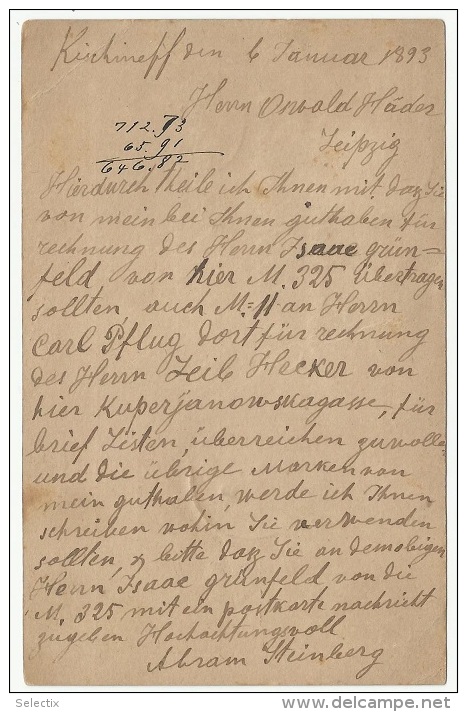 Kischineff den 6 Januar 1893
Herrn Oswald Häder
Leipzig
712.73
65.91
646.82
Hierdurch theile ich Ihnen mit daz Sie
von mein bei Ihnen guthaben für
rechnung des Herrn Isaac grün-
feld, von hier M. 325 übertragen
sollten, auch M=11 an Herrn
Carl Pflug dort für rechnung
des Herrn Leib Hecker von
hier Kuperjanowskagasse, für
brief Listen, überreichen zuwolle
und die übrige Marken von
mein guthaben, werde ich Ihnen
schreiben wohin Sie verwenden
sollten, & bitte daz Sie an demobigen
Herrn Isaac grünfeld von die
M. 325 mit ein postkarte nachricht
zugeben Hochachtungsvoll
Abram Steinberg
Selectix
delcampe.net